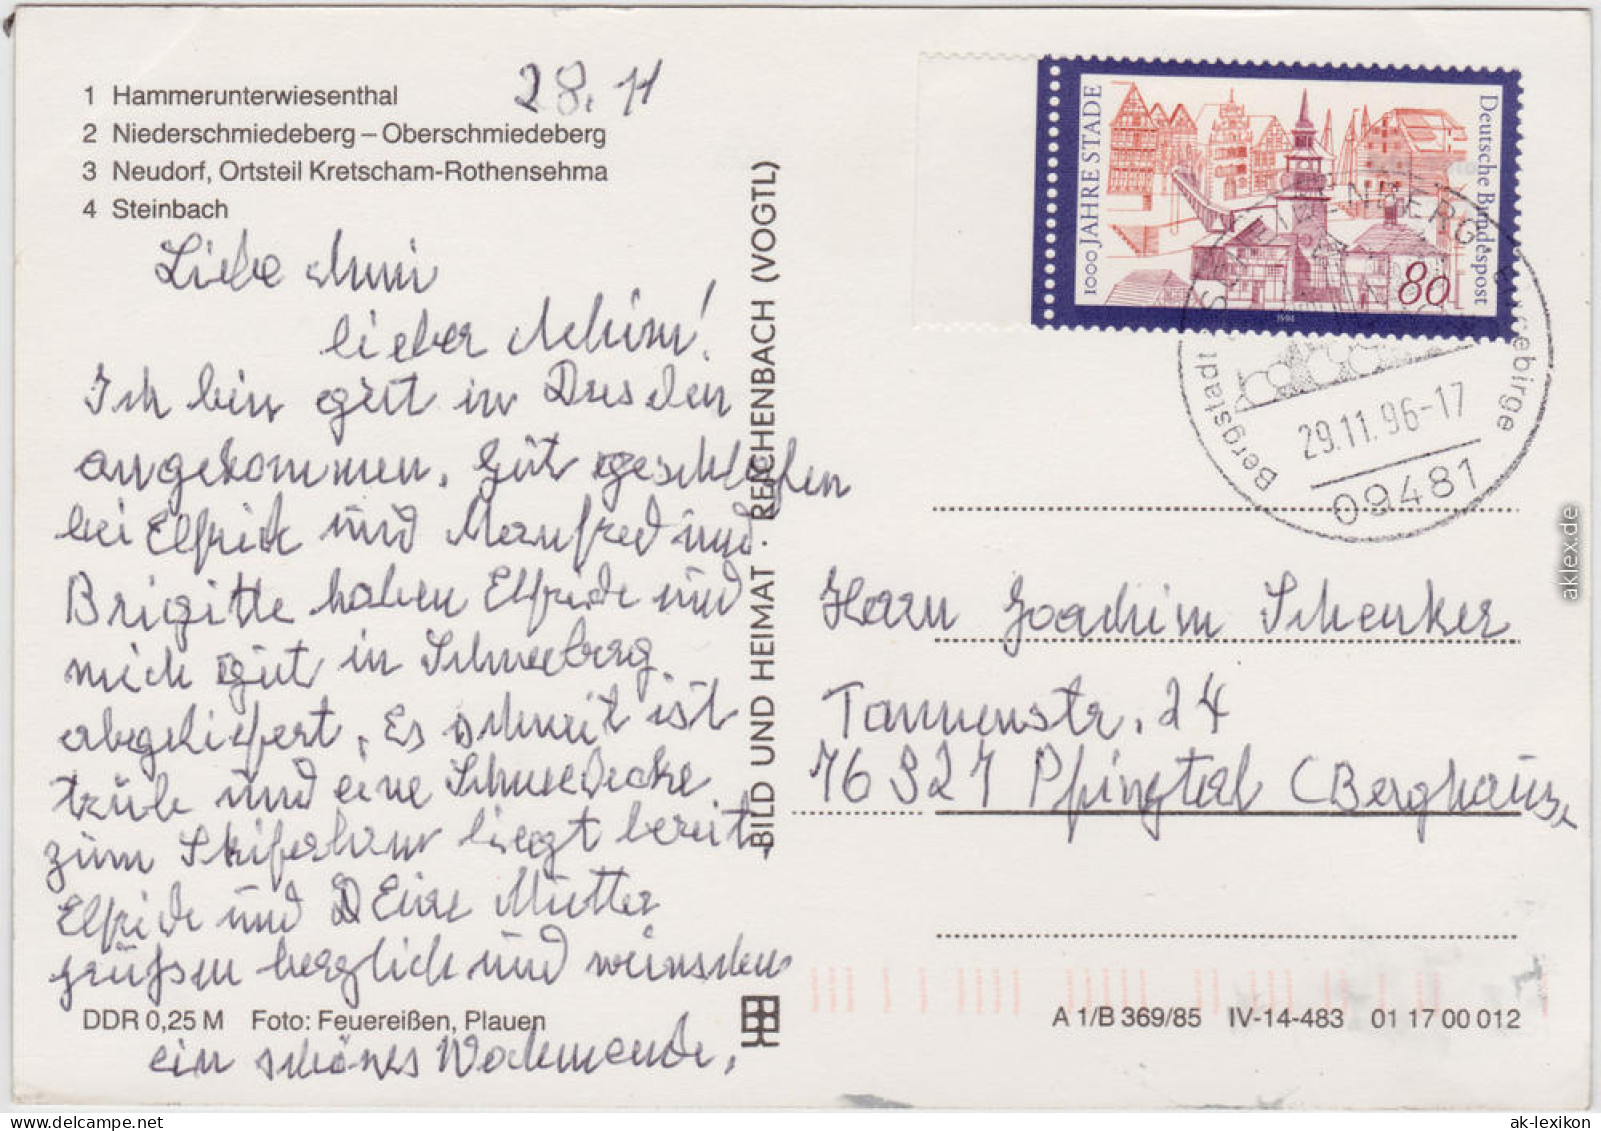 1 Hammerunterwiesenthal
2 Niederschmiedeberg – Oberschmiedeberg
3 Neudorf, Ortsteil Kretscham-Rothensehma
4 Steinbach
28. 11
Liebe
lieber Achim!
Ich bin gut in Dresden
angekommen. Gut geschlafen
bei Elfriede und Manfred und
Brigitte haben Elfriede und
mich gut in Schneeberg
abgeliefert. Es schneit ist
trüb und eine Schneedecke
zum Skifahren liegt bereit.
Elfriede und Eure Mutter
grüßen herzlich und wünschen
ein schönes Wochenende.
DDR 0,25 M Foto: Feuereißen, Plauen
BILD UND HEIMAT REICHENBACH (VOGTL)
1000 JAHRE STADE
Deutsche Bundespost
80
1994
Bergstadt SCHEIBENBERG · Erzgebirge
29.11.96-17
09481
Herrn Joachim Schenker
Tannenstr. 24
76327 Pfinztal (Berghausen
A 1/B 369/85 IV-14-483 01 17 00 012
aklex.de
ak-lexikon